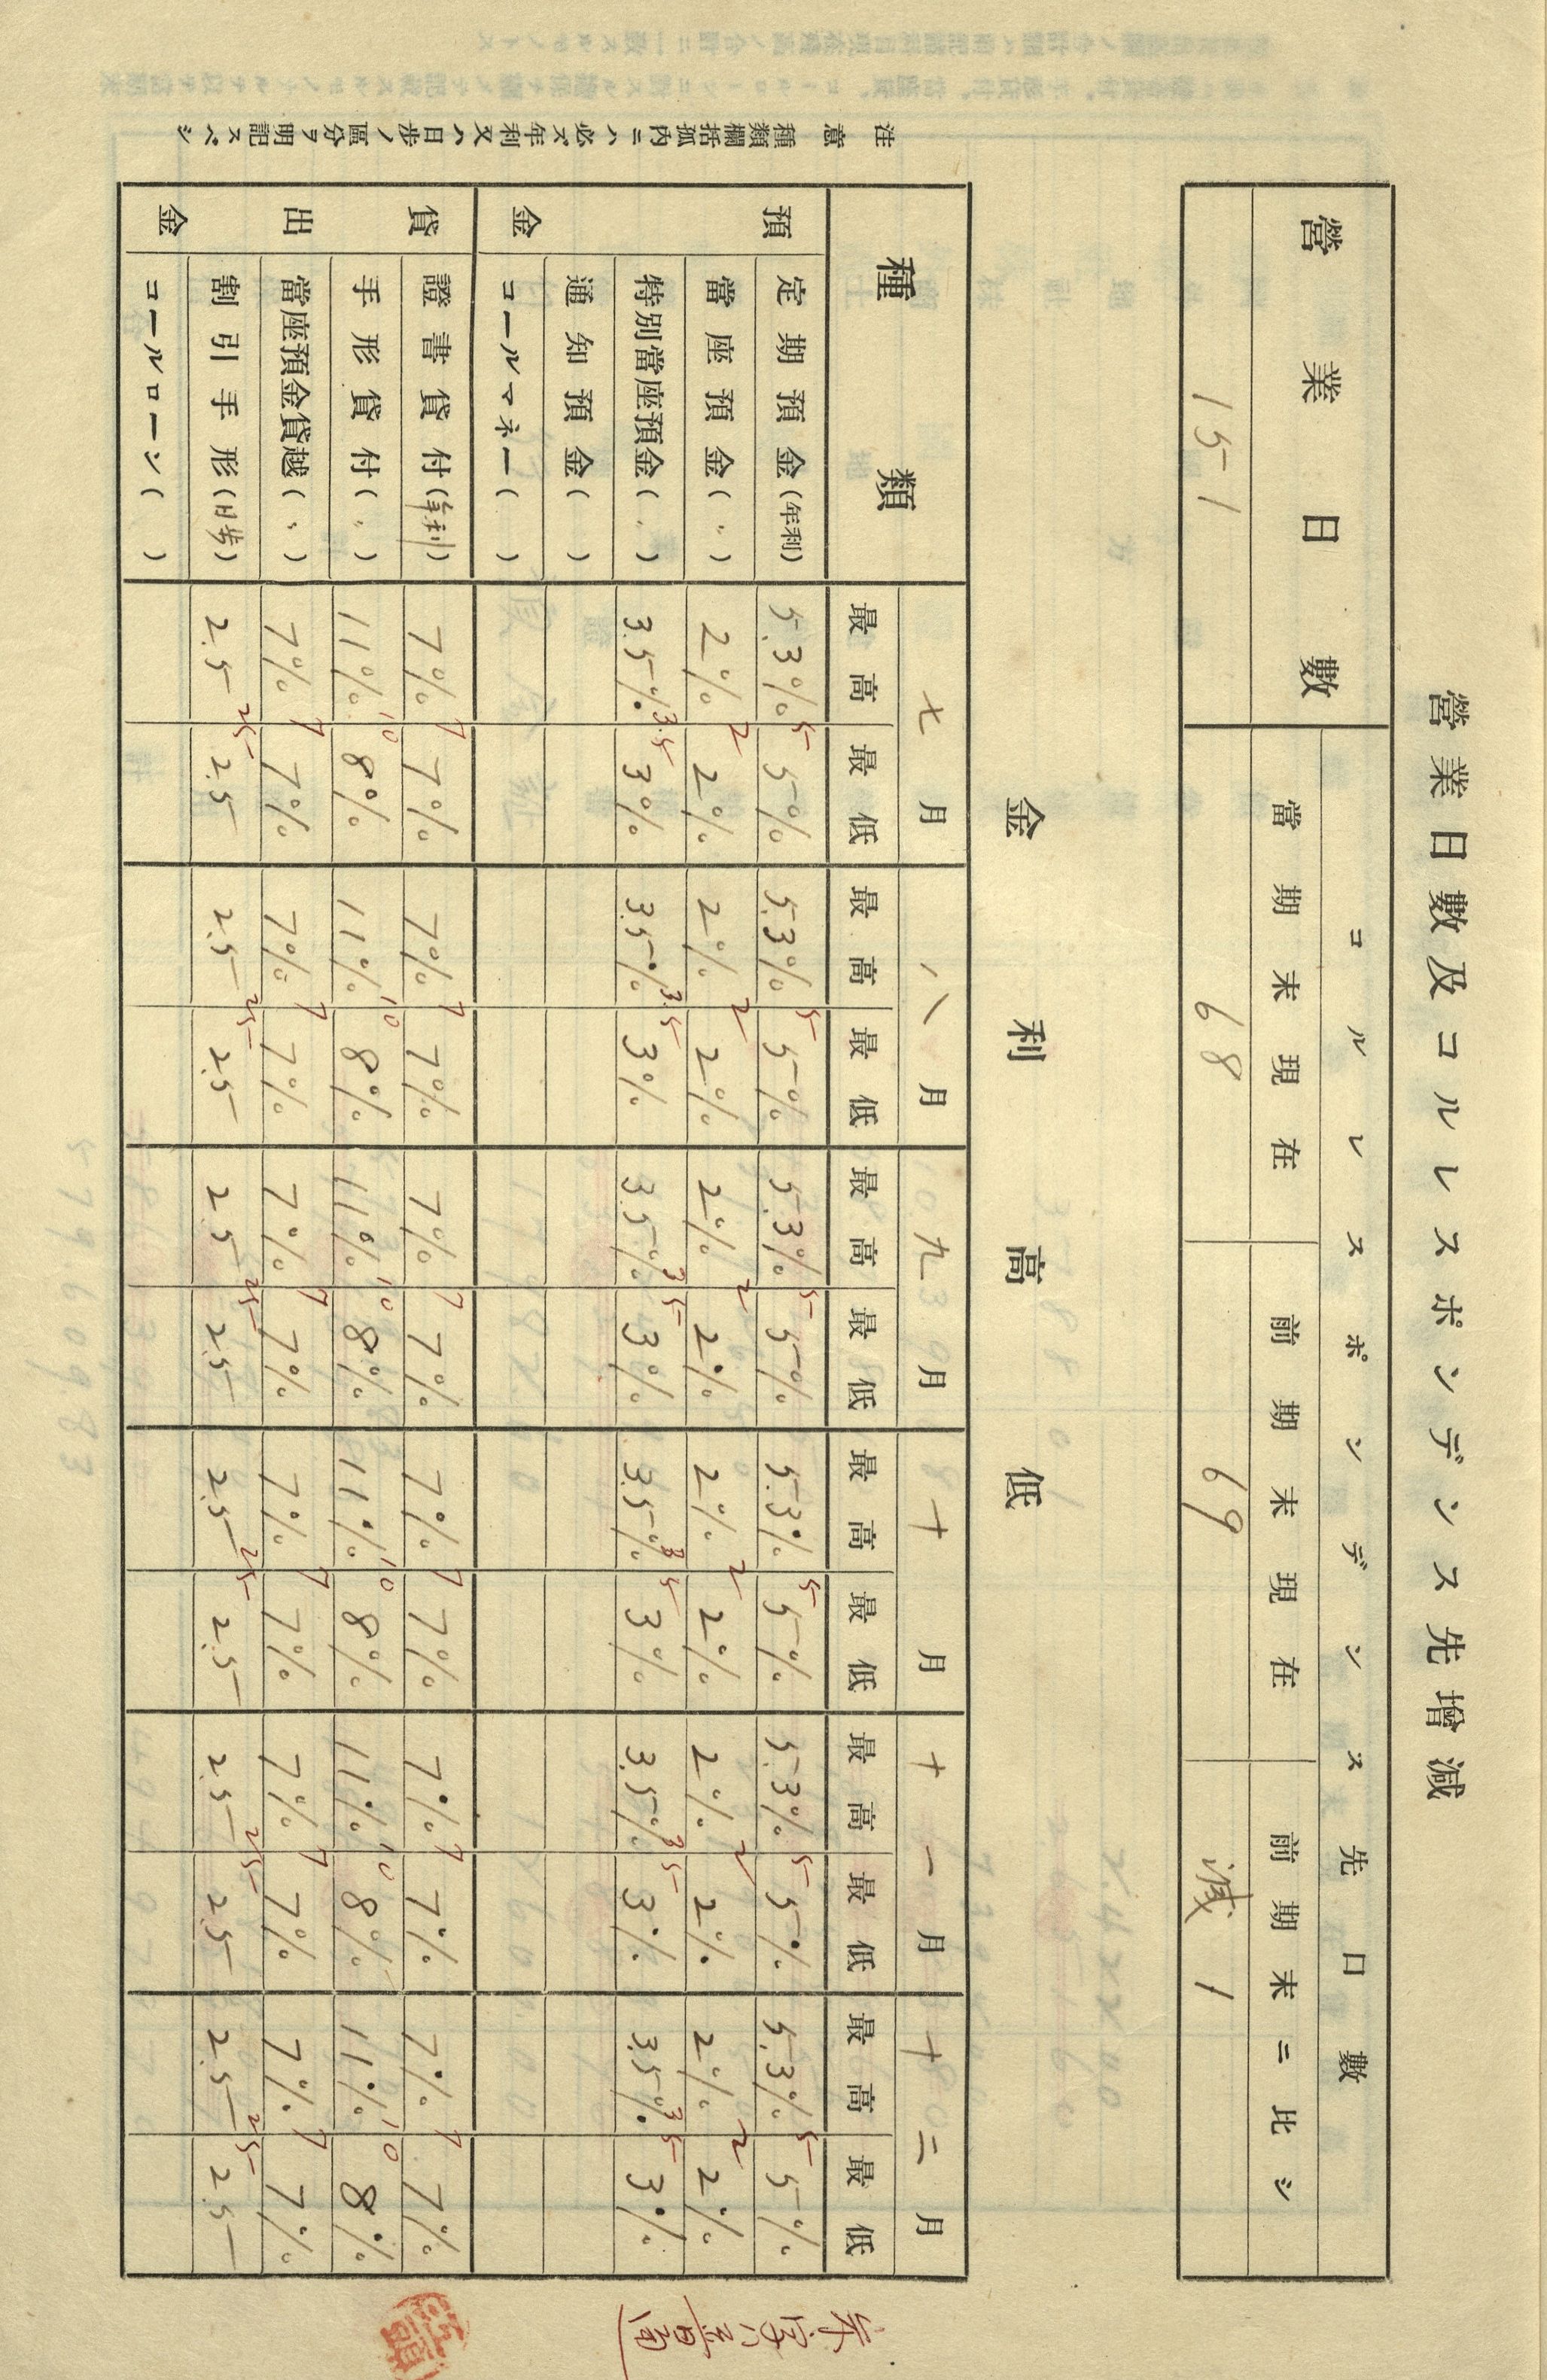 營業日數及コルレスポンデンス先增減
營業日數 コルレスポンデンス先口數
當期末現在 前期末現在 前期末ニ比シ
151 68 69 減 1
金利高低
種類 七月 八月 九月 十月 十一月 十二月
最高 最低 最高 最低 最高 最低 最高 最低 最高 最低 最高 最低
預金
定期預金(年利) 5.3% 5 5% 5.3% 5 5% 5.3% 5 5% 5.3% 5 5% 5.3% 5 5% 5.3% 5 5%
當座預金(〃) 2% 2 2% 2% 2 2% 2% 2 2% 2% 2 2% 2% 2 2% 2% 2 2%
特別當座預金(〃) 3.5% 3.5 3% 3.5% 3.5 3% 3.5% 3.5 3% 3.5% 3.5 3% 3.5% 3.5 3% 3.5% 3.5 3%
通知預金( )
コールマネー( )
貸出金
證書貸付(年利) 7% 7 7% 7% 7 7% 7% 7 7% 7% 7 7% 7% 7 7% 7% 7 7%
手形貸付(〃) 11% 10 8% 11% 10 8% 11% 10 8% 11% 10 8% 11% 10 8% 11% 10 8%
當座預金貸越(〃) 7% 7 7% 7% 7 7% 7% 7 7% 7% 7 7% 7% 7 7% 7% 7 7%
割引手形(日歩) 2.5 2.5 2.5 2.5 2.5 2.5 2.5 2.5 2.5 2.5 2.5 2.5 2.5 2.5 2.5 2.5 2.5 2.5
コールローン( )
注意 種類欄括狐內ニハ必ズ年利又ハ日步ノ區分ヲ明記スベシ